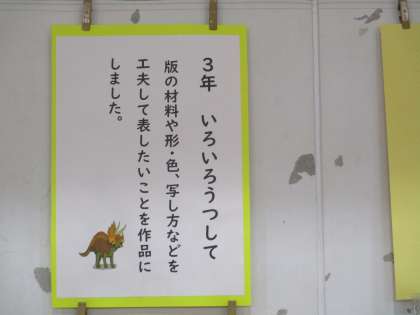 ３年　いろいろうつして
版の材料や形・色、写し方などを
工夫して表したいことを作品に
しました。